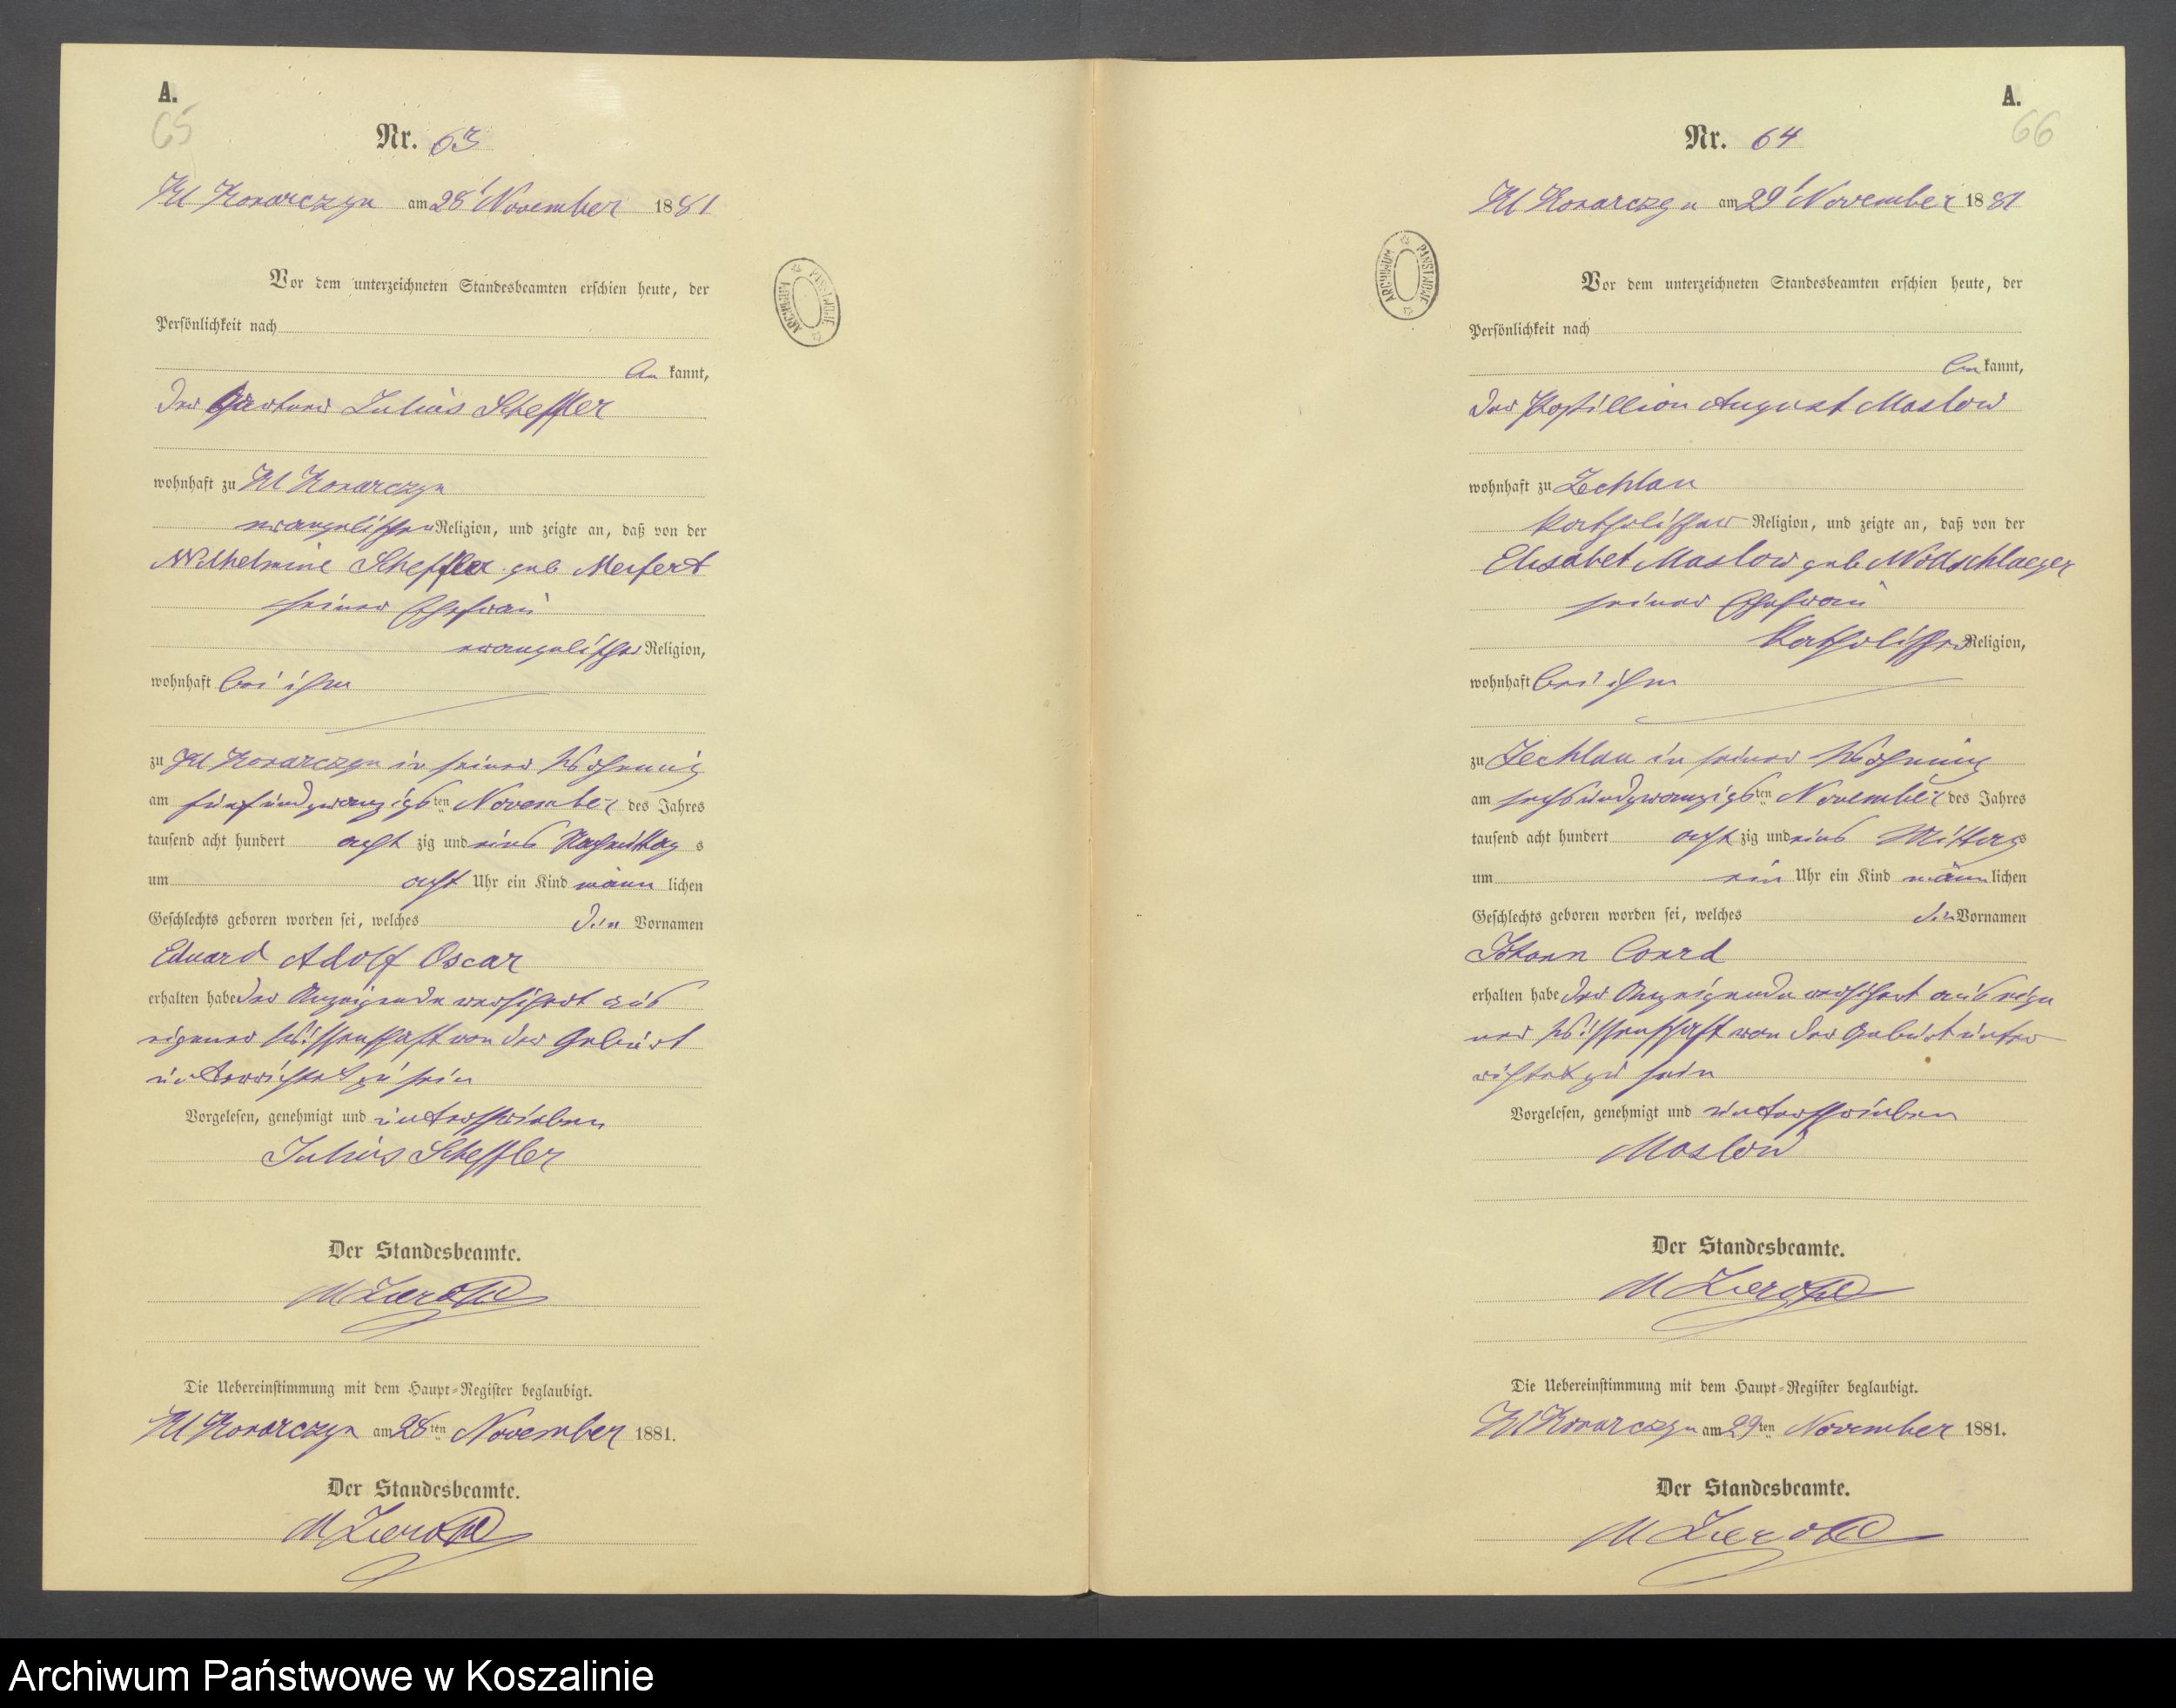 A.
65
Nr. 63
Kl Konarczyn am 28t November 1881
Vor dem unterzeichneten Standesbeamten erschien heute, der
Persönlichkeit nach
be kannt,
der Gärtner Julius Scheffler
wohnhaft zu Kl Konarczyn
evangelischen Religion, und zeigte an, daß von der
Wilhelmine Scheffler geb Meifert
seiner Ehefrau
evangelischer Religion,
wohnhaft bei ihm
zu Kl Konarczyn in seiner Wohnung
am fünfundzwanzigsten November des Jahres
tausend acht hundert acht zig und eins Nachmittag s
um acht Uhr ein Kind männ lichen
Geschlechts geboren worden sei, welches die Vornamen
Eduard Adolf Oscar
erhalten habe der Anzeigende versichert aus
eigener Wissenschaft von der Geburt
unterrichtet zu sein
Vorgelesen, genehmigt und unterschrieben
Julius Scheffler
Der Standesbeamte.
Die Uebereinstimmung mit dem Haupt-Register beglaubigt.
Kl Konarczyn am 28ten November 1881.
Der Standesbeamte.
ARCHIWUM PAŃSTWOWE
A.
66
Nr. 64
Kl Konarczyn am 29t November 1881
Vor dem unterzeichneten Standesbeamten erschien heute, der
Persönlichkeit nach
be kannt,
der Postillion August Maslow
wohnhaft zu Zechlau
katholischer Religion, und zeigte an, daß von der
Elisabet Maslow geb Wollschlaeger
seiner Ehefrau
katholischer Religion,
wohnhaft bei ihm
zu Zechlau in seiner Wohnung
am sechsundzwanzigsten November des Jahres
tausend acht hundert acht zig und eins Mittags
um ein Uhr ein Kind männ lichen
Geschlechts geboren worden sei, welches die Vornamen
Johann Conrd
erhalten habe der Anzeigende versichert aus eige
ner Wissenschaft von der Geburt unter
richtet zu sein
Vorgelesen, genehmigt und unterschrieben
Maslow
Der Standesbeamte.
Die Uebereinstimmung mit dem Haupt-Register beglaubigt.
Kl Konarczyn am 29ten November 1881.
Der Standesbeamte.
ARCHIWUM PAŃSTWOWE
Archiwum Państwowe w Koszalinie